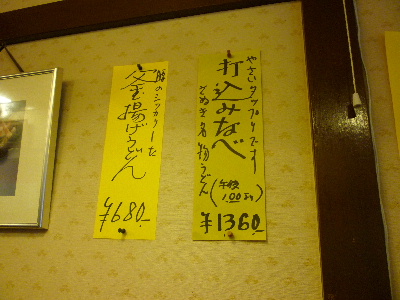 やさいタップリです
打込みなべ
さぬき名物うどん
(午後
1.00より)
¥1360.-
腰のシッカリした
釜揚げうどん
¥680.-